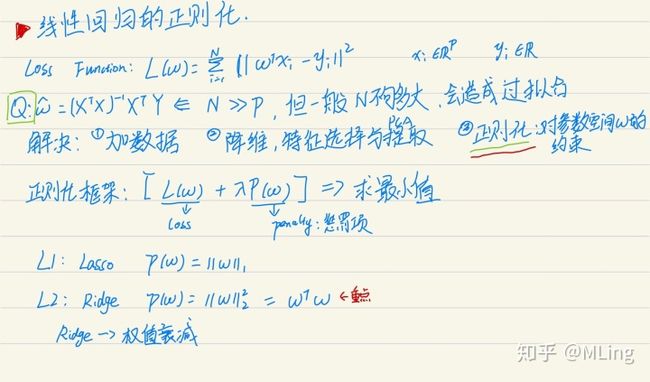 ▶ 线性回归的正则化.
Loss Function: L(ω) = Σ_{i=1}^{N} ||ω^T x_i - y_i||^2 x_i ∈ R^P y_i ∈ R
Q: ω̂ = (X^T X)^{-1} X^T Y ⇐ N ≫ P, 但一般N不够大, 会造成过拟合
解决: ①加数据 ②降维, 特征选择与提取 PCA ③正则化: 对参数空间ω的约束
正则化框架: [L(ω) + λP(ω)] ⇒ 求最小值
↓ Loss ↓ penalty: 惩罚项
L1: Lasso P(ω) = ||ω||_1
L2: Ridge P(ω) = ||ω||_2^2 = ω^T ω ←重点
Ridge → 权值衰减
知乎 @MLing